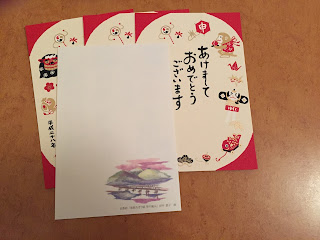 申
あけまして
おめでとう
ございます
平成二十八年